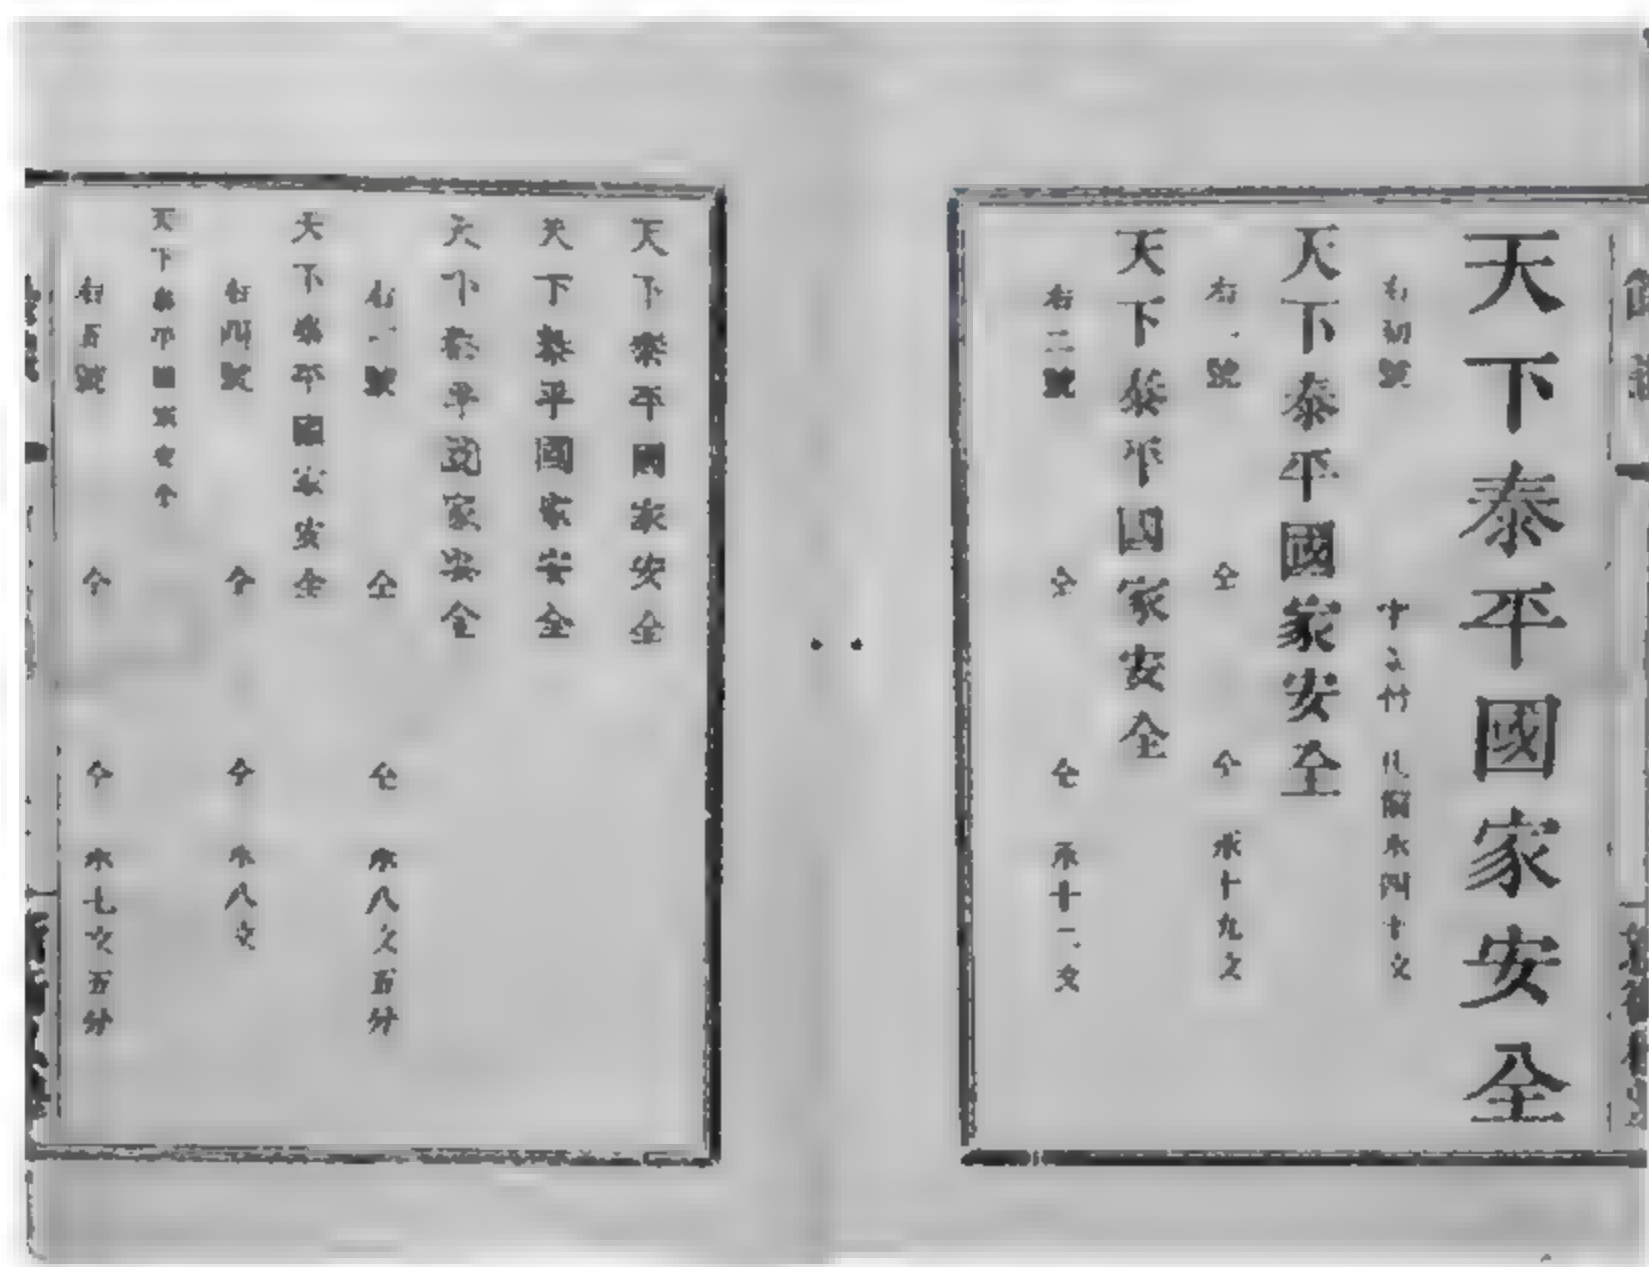 天下泰平國家安全
右初號
代價永四十文
天下泰平國家安全
右一號 仝 仝 永十九文
天下泰平國家安全
右二號 仝 仝 永十一文
天下泰平國家安全
天下泰平國家安全
天下泰平國家安全
號 仝 仝 永八文五分
天下泰平國家安全
右四號 仝 仝 永八文
天下泰平國家安全
右五號 仝 仝 永七文五分